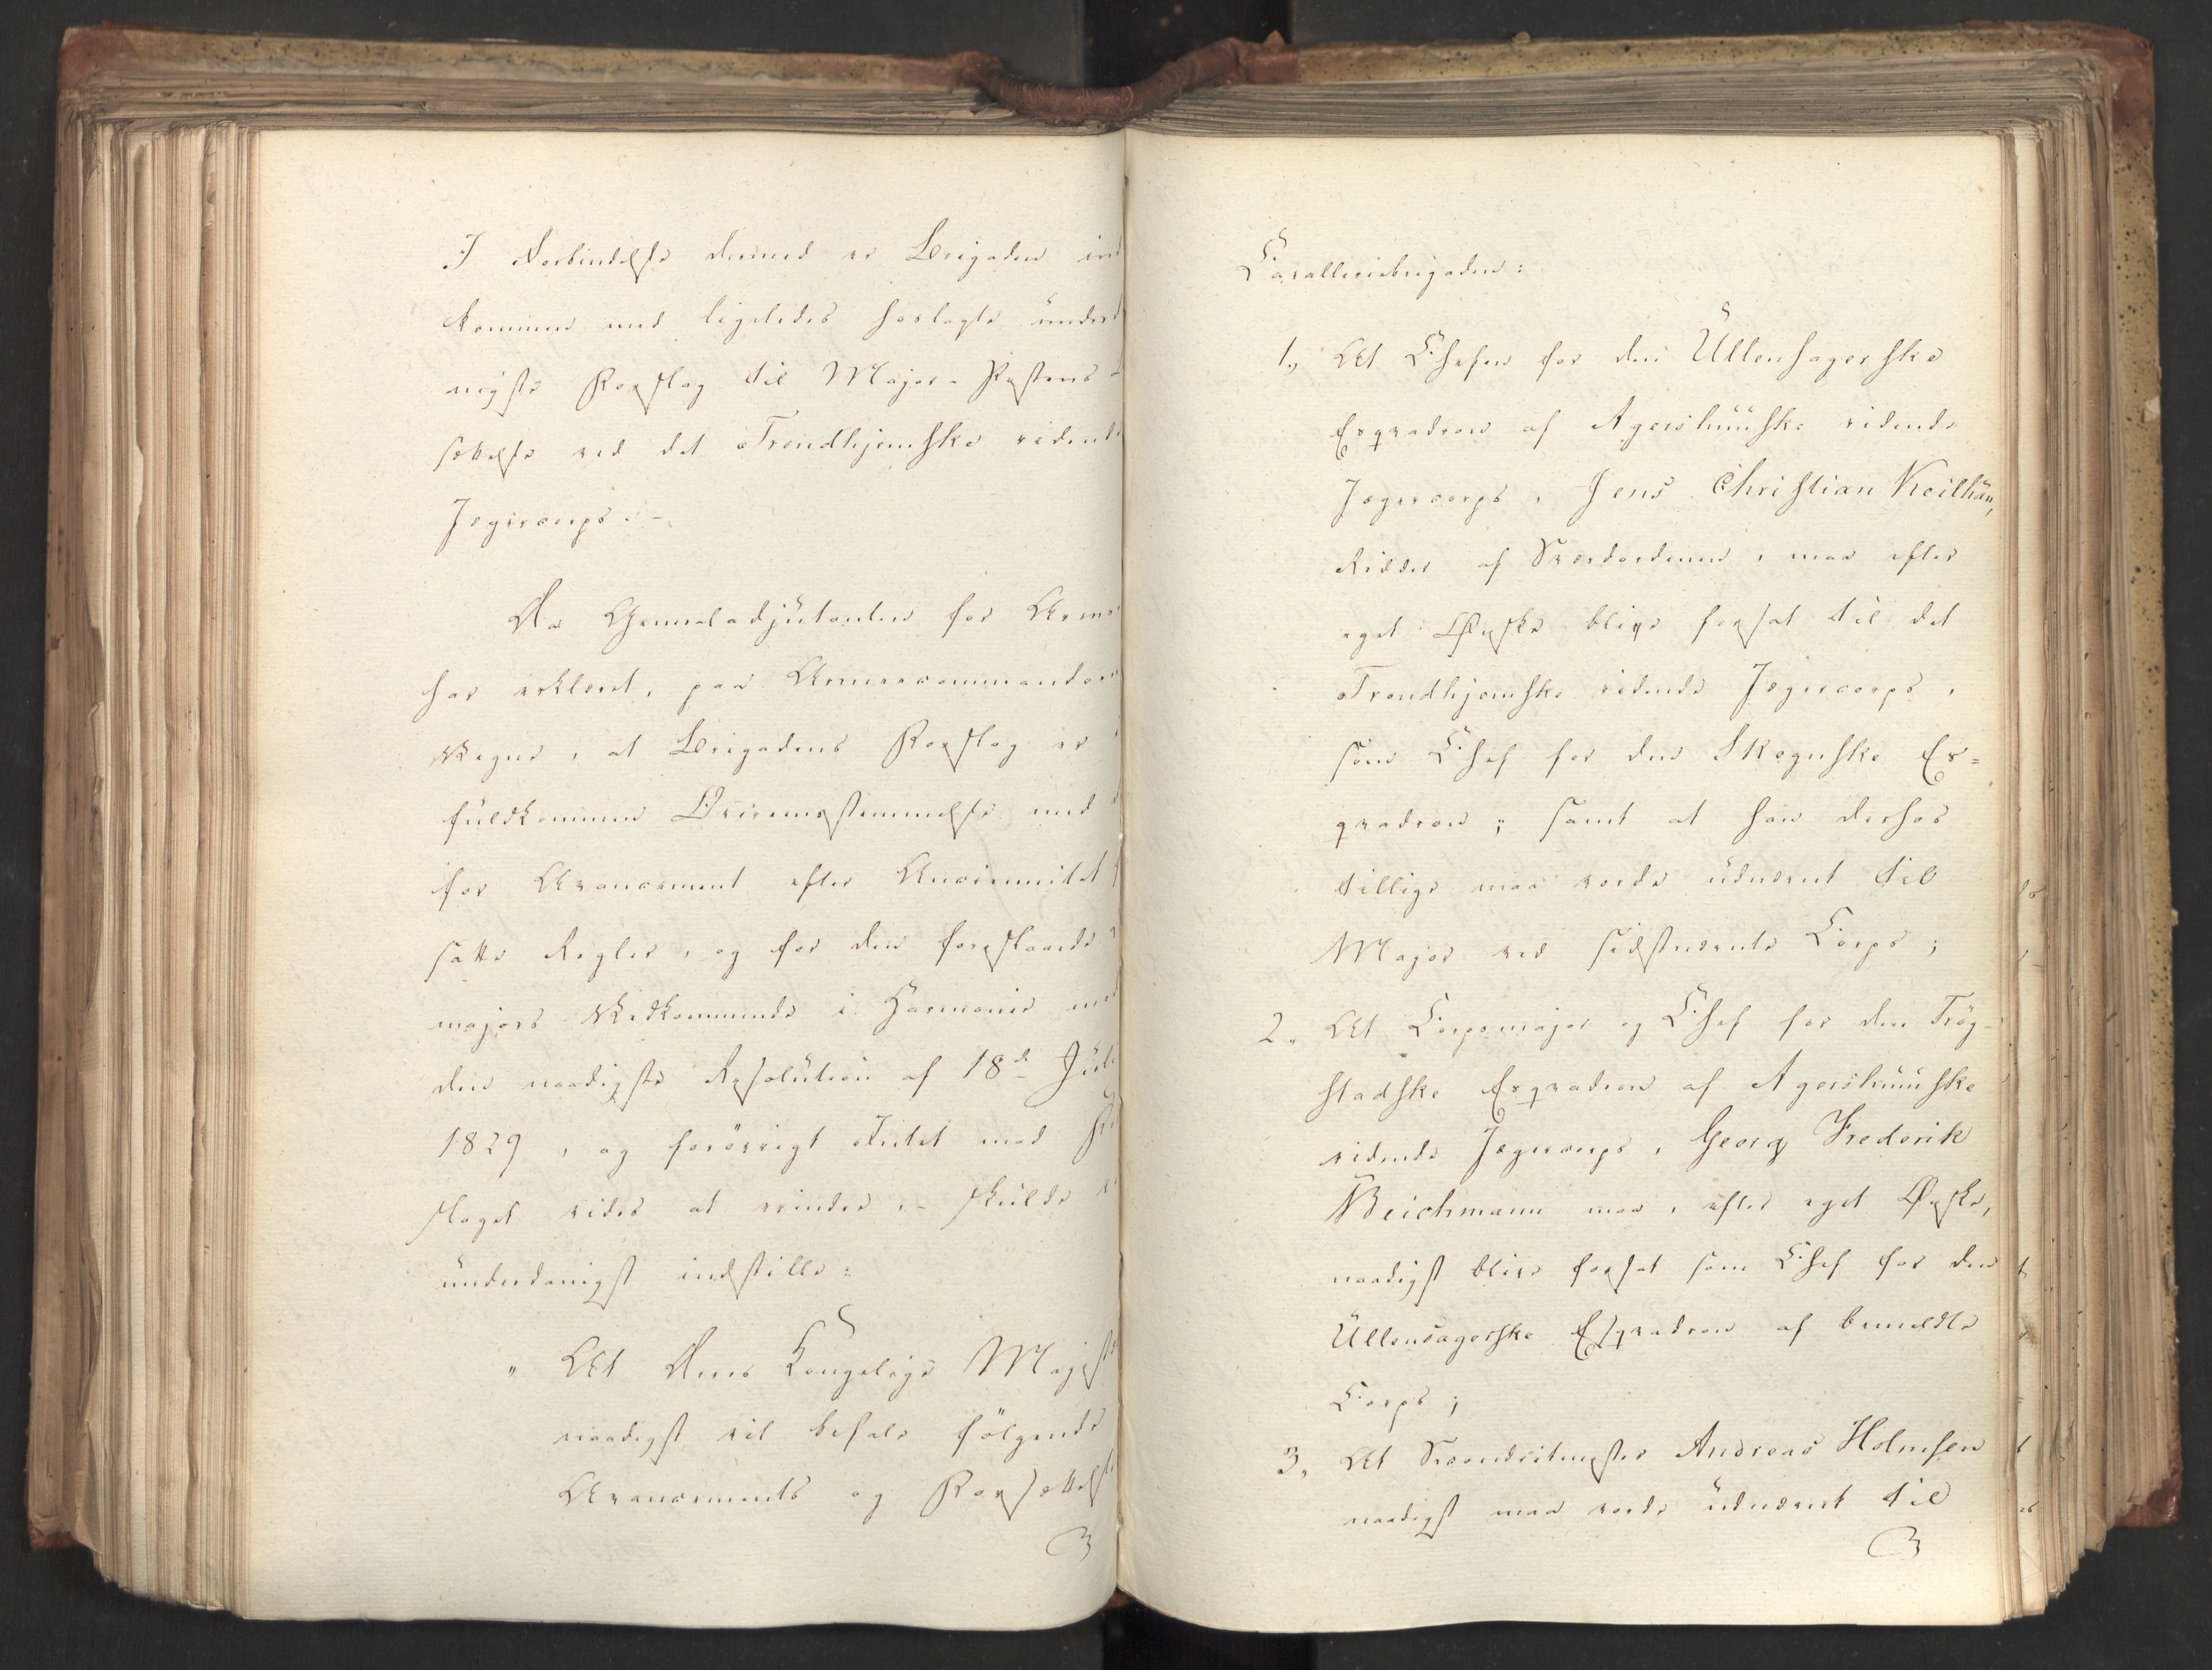 I Forbindelse dermed er Brigaden ind
kommen med ligeledes herlagte underd
nigste Forslag til Major-Postens
sættelse ved det Trondhjemske ridende
Jægercorps.-
Da Generaladjutanten for Arme
har erkleret, paa Armeecommandoe
Vegne, at Brigadens Forslag er
fuldkommen Overensstemmelse med
for Avancement efter Anciennitet
satte Regler, og for den foreslaaede
majors Vedkommende i Harmonie med
den naadigste Resolution af 18de Juli
1829, og forövrigt Intet mod For
slaget vides at erindre,- skulde
underdanigst indstille:
" At Deres Kongelige Majest
naadigst vil befale fölgende
Avancements og Forsættelse
Cavalleriebrigaden:
1, At Chefen for den Ullensagerske
Esqvadron af Agershuusske ridende
Jægercorps, Jens Christian Keilhau,
Ridder af Sværdordenen, maa efter
eget Ønske blive forsat til det
Trondhjemske ridende Jægercorps,
som Chef for den Skognske Es=
qvadron; samt at han derhos
tillige maa vorde udnævnt til
Major ved sidstnævnte Corps;
2, At Corpsmajor og Chef for den Trög-
stadske Esqvadron af Agershuusske
ridende Jægercorps, Georg Frederik
Beichmann maa, efter eget Ønske,
naadigst blive forsat som Chef for den
Ullensagerske Esqvadron af bemeldte
Corps;
3, At Secondritmester Andreas Holmsen
naadigst maa vorde udnævnt til